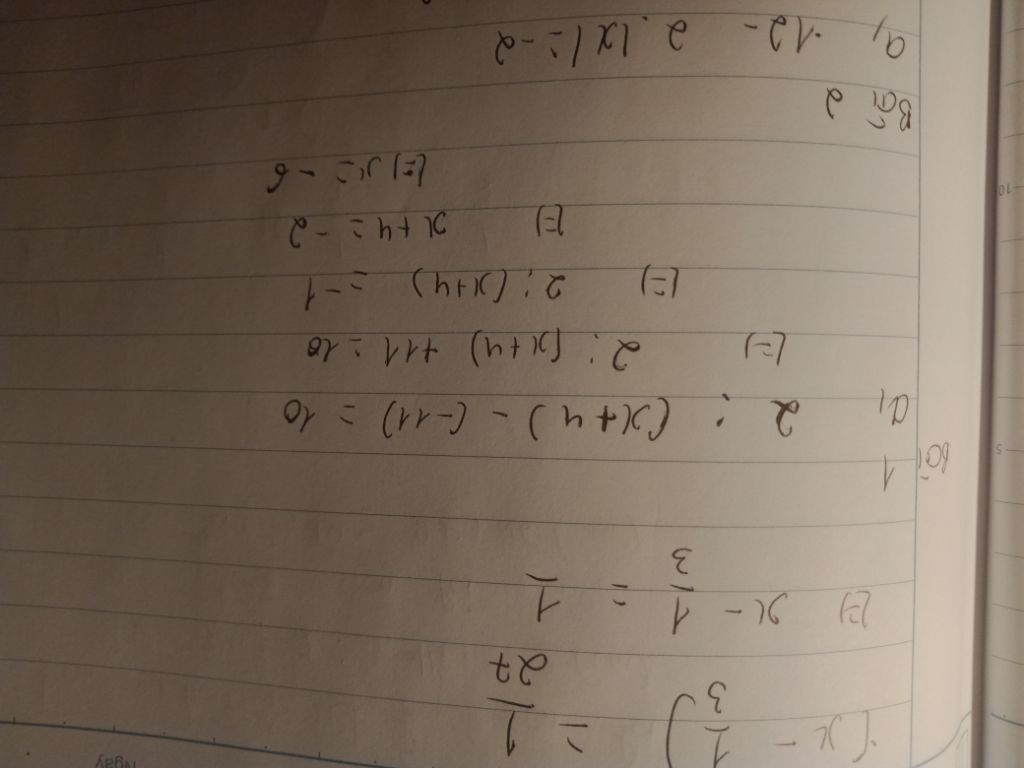 Ngày
(x - 1/3) = 1/27
(=) x - 1/3 = 1/
Bài 1
a, 2 : (x+4) - (-11) = 10
(=) 2 : (x+4) + 11 = 10
(=) 2 : (x+4) = -1
(=) x+4 = -2
(=) x = -6
Bài 2
a, 12 - 2.|x| = -2
5
10